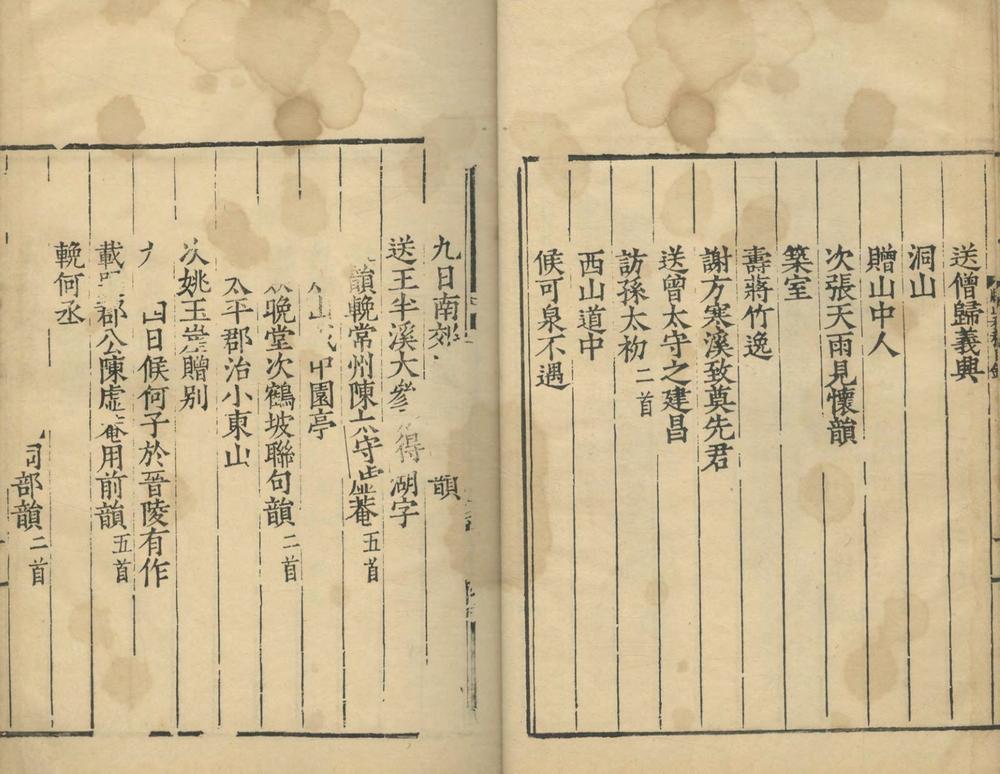 送僧歸義興
洞山
贈山中人
次張天雨見懷韻
築室
壽蔣竹逸
謝方寒溪致奠先君
送曾太守之建昌
訪孫太初二首
西山道中
候可泉不遇
九日南郊 韻
送王半溪大參得湖字
韻輓常州陳太守虛菴五首
山 中園亭
晚堂次鶴坡聯句韻二首
太平郡治小東山
次姚玉崖贈別
日候何子於晉陵有作
載 郡公陳虛菴用前韻五首
輓何丞
司部韻二首